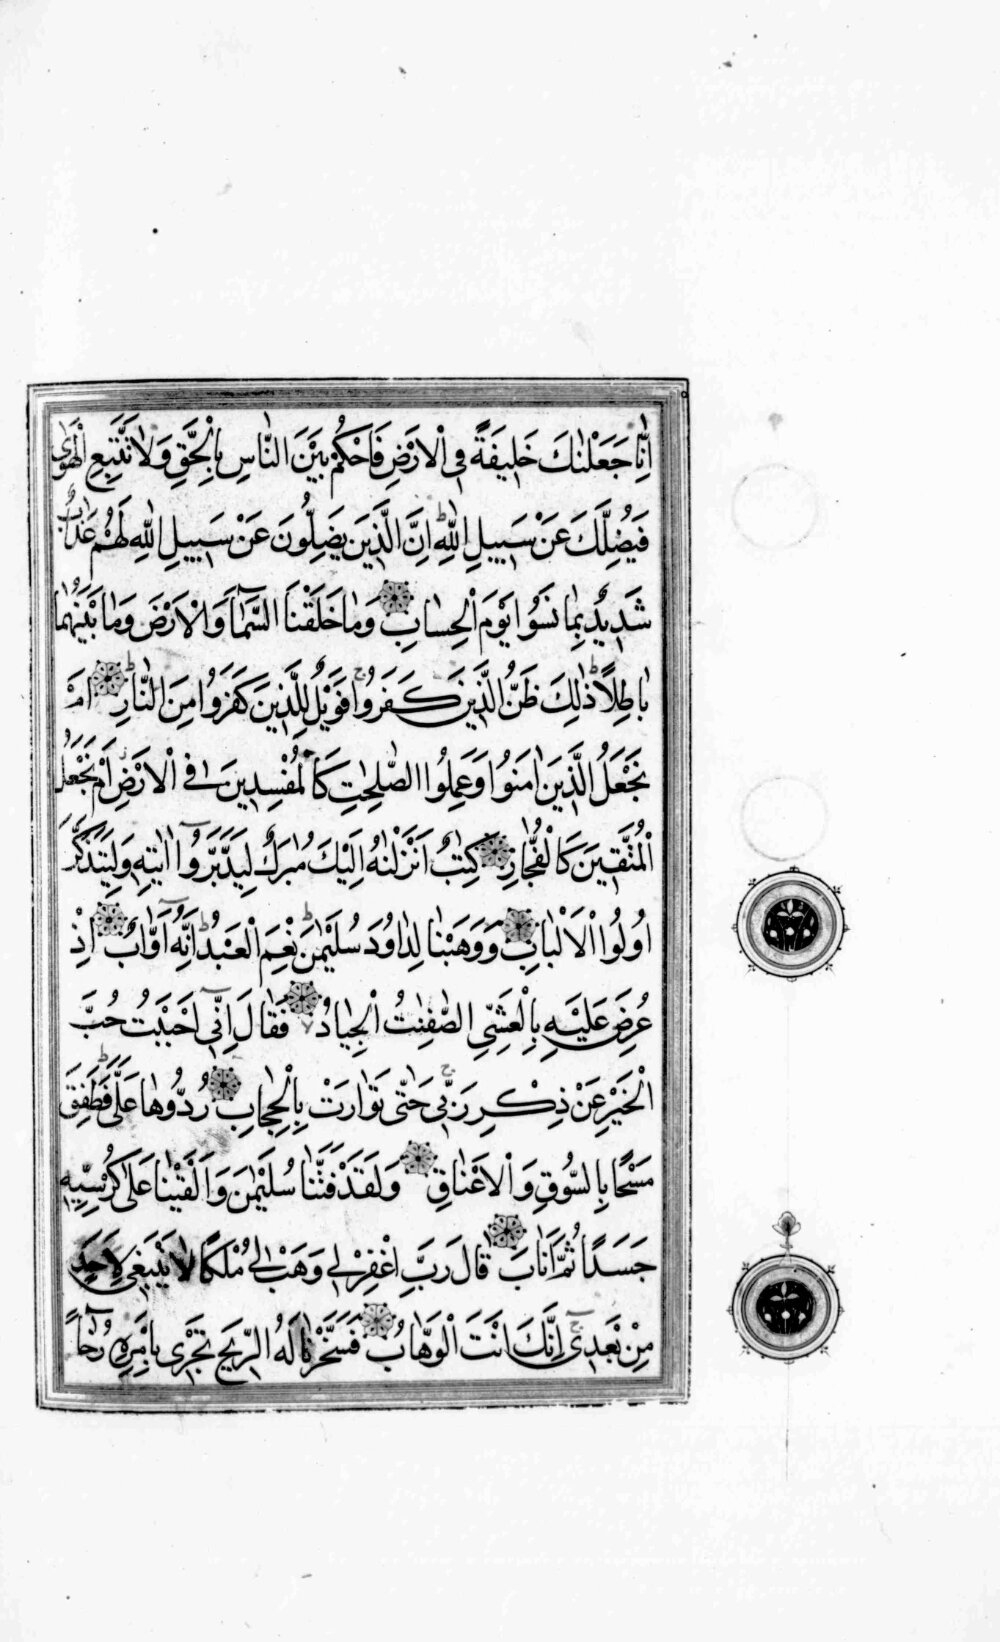 اِنَّا جَعَلْنٰكَ خَلِيفَةً فِي الْاَرْضِ فَاحْكُمْ بَيْنَ النَّاسِ بِالْحَقِّ وَلَا تَتَّبِعِ الْهَوٰى
فَيُضِلَّكَ عَنْ سَبِيلِ اللّٰهِ ط اِنَّ الَّذِينَ يَضِلُّونَ عَنْ سَبِيلِ اللّٰهِ لَهُمْ عَذَابٌ
شَدِيدٌ بِمَا نَسُوا يَوْمَ الْحِسَابِ وَمَا خَلَقْنَا السَّمَاءَ وَالْاَرْضَ وَمَا بَيْنَهُمَا
بَاطِلًا ط ذٰلِكَ ظَنُّ الَّذِينَ كَفَرُوا ج فَوَيْلٌ لِلَّذِينَ كَفَرُوا مِنَ النَّارِ ط اَمْ
نَجْعَلُ الَّذِينَ اٰمَنُوا وَعَمِلُوا الصّٰلِحٰتِ كَالْمُفْسِدِينَ فِي الْاَرْضِ اَمْ نَجْعَلُ
الْمُتَّقِينَ كَالْفُجَّارِ كِتٰبٌ اَنْزَلْنٰهُ اِلَيْكَ مُبٰرَكٌ لِيَدَّبَّرُوا اٰيٰتِهِ وَلِيَتَذَكَّرَ
اُولُوا الْاَلْبَابِ وَوَهَبْنَا لِدَاوُدَ سُلَيْمٰنَ ط نِعْمَ الْعَبْدُ ط اِنَّهُ اَوَّابٌ اِذْ
عُرِضَ عَلَيْهِ بِالْعَشِيِّ الصّٰفِنٰتُ الْجِيَادُ لا فَقَالَ اِنِّي اَحْبَبْتُ حُبَّ
الْخَيْرِ عَنْ ذِكْرِ رَبِّي ج حَتّٰى تَوَارَتْ بِالْحِجَابِ رُدُّوهَا عَلَيَّ ط فَطَفِقَ
مَسْحًا بِالسُّوقِ وَالْاَعْنَاقِ وَلَقَدْ فَتَنَّا سُلَيْمٰنَ وَاَلْقَيْنَا عَلٰى كُرْسِيِّهِ
جَسَدًا ثُمَّ اَنَابَ قَالَ رَبِّ اغْفِرْ لِي وَهَبْ لِي مُلْكًا لَا يَنْبَغِي لِاَحَدٍ
مِنْ بَعْدِي ج اِنَّكَ اَنْتَ الْوَهَّابُ فَسَخَّرْنَا لَهُ الرِّيحَ تَجْرِي بِاَمْرِهِ رُخَاءً